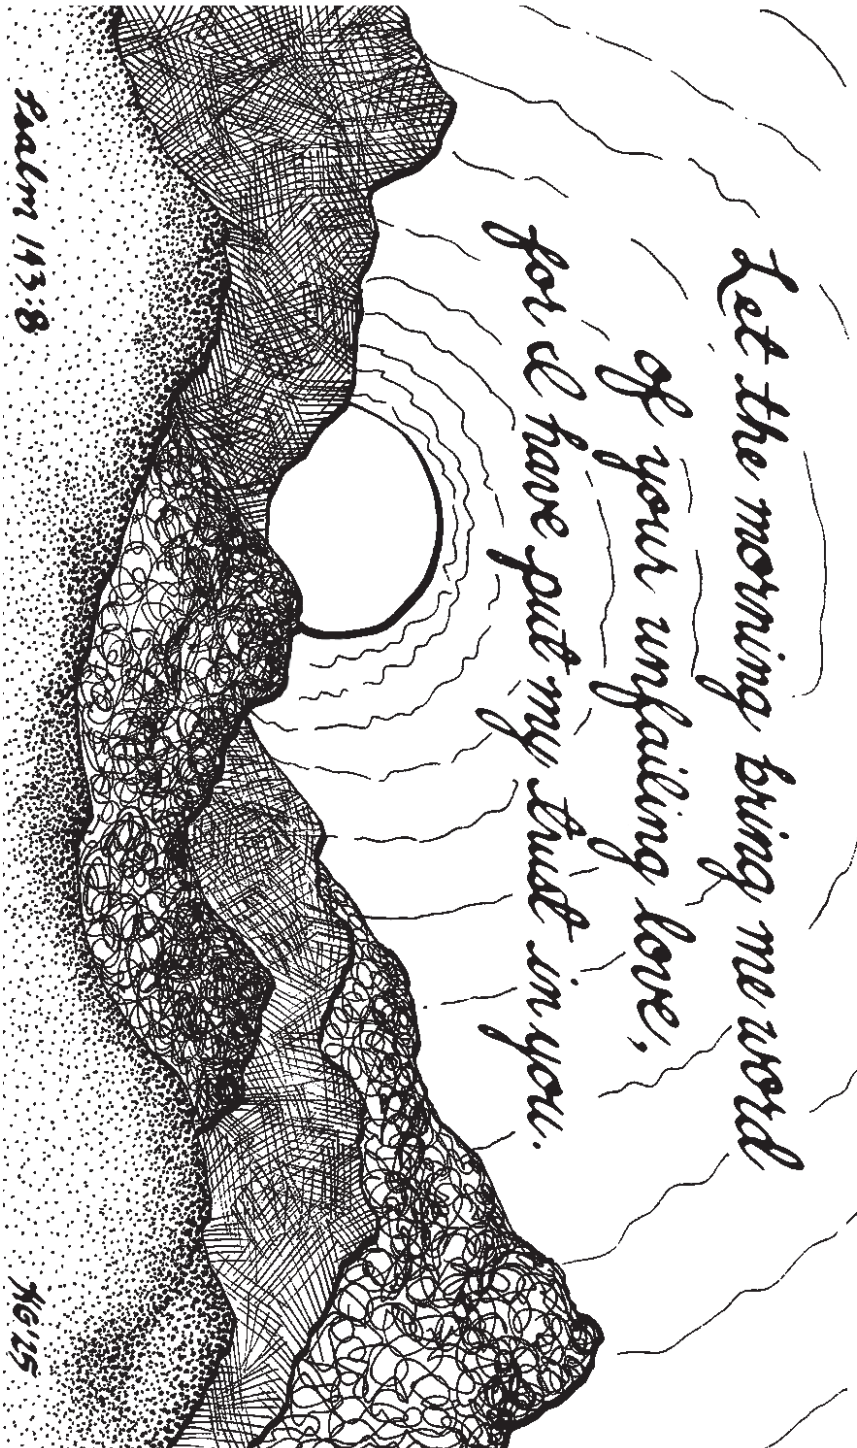 Let the morning bring me word
of your unfailing love,
for I have put my trust in you.
Psalm 143:8